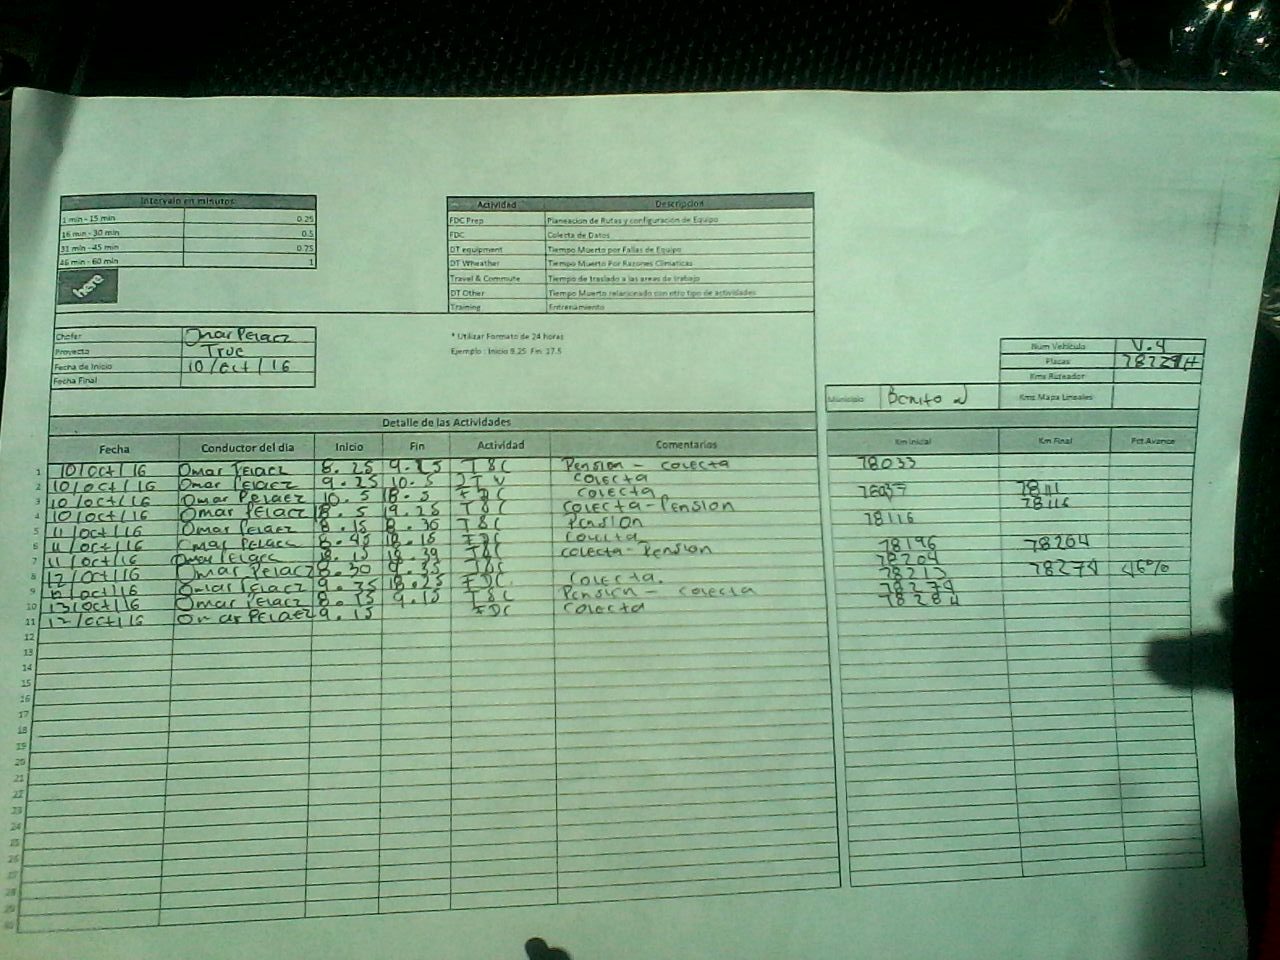 Intervalo en minutos
1 min - 15 min 0.25
16 min - 30 min 0.5
31 min - 45 min 0.75
46 min - 60 min 1
here
Actividad Descripcion
FDC Prep Planeacion de Rutas y configuración de Equipo
FDC Colecta de Datos
DT equipment Tiempo Muerto por Fallas de Equipo
DT Wheather Tiempo Muerto Por Razones Climaticas
Travel & Commute Tiempo de traslado a las areas de trabajo
DT Other Tiempo Muerto relacionado con otro tipo de actividades
Training Entrenamiento
Chofer Omar Pelaez
Proyecto True
Fecha de Inicio 10/oct/16
Fecha Final
* Utilizar Formato de 24 horas
Ejemplo : Inicio 8.25 Fin: 17.5
Num Vehículo V.4
Placas
Kms Ruteador
Municipio Benito J Kms Mapa Lineales
Detalle de las Actividades
Fecha Conductor del día Inicio Fin Actividad Comentarios Km Inicial Km Final Pct Avance
1 10/oct/16 Omar Pelaez 8.25 9.25 T&C Pension - colecta 78033
2 10/oct/16 Omar Pelaez 9.25 10.5 colecta
3 10/oct/16 Omar Pelaez 10.5 18.5 FDC colecta 78111
4 10/oct/16 Omar Pelaez 18.5 19.25 T&C colecta-Pension 78116
5 11/oct/16 Omar Pelaez 8.15 8.30 T&C Pension 78116
6 11/oct/16 Omar Pelaez 18.15 FDC colecta
7 11/oct/16 Omar Pelaez 18.15 18.39 T&C colecta-Pension 78196 78204
8 12/oct/16 Omar Pelaez 8.30 T&C 78204
9 Omar Pelaez 18.25 FDC colecta. 78213 78274
10 13/oct/16 Omar Pelaez 8.15 9.15 T&C Pension - colecta 78274
11 12/oct/16 Omar Pelaez 9.15 FDC colecta 78284
12
13
14
15
16
17
18
19
20
21
22
23
24
25
26
27
28
29
30